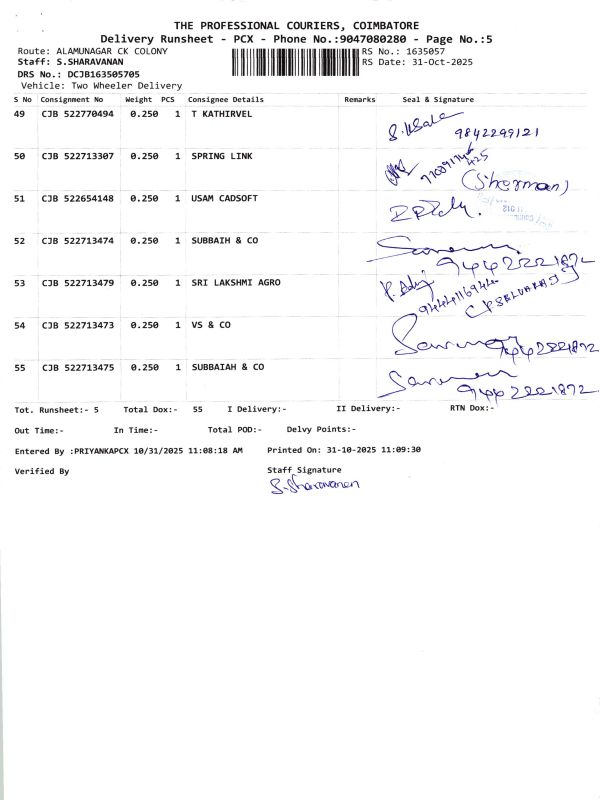 THE PROFESSIONAL COURIERS, COIMBATORE
Delivery Runsheet - PCX - Phone No.:9047080280 - Page No.:5
Route: ALAMUNAGAR CK COLONY
RS No.: 1635057
Staff: S.SHARAVANAN
RS Date: 31-Oct-2025
DRS No.: DCJB163505705
Vehicle: Two Wheeler Delivery
S No Consignment No Weight PCS Consignee Details Remarks Seal & Signature
49 CJB 522770494 0.250 1 T KATHIRVEL
9842299121
50 CJB 522713307 0.250 1 SPRING LINK
(Sherman)
51 CJB 522654148 0.250 1 USAM CADSOFT
52 CJB 522713474 0.250 1 SUBBAIH & CO
9442221872
53 CJB 522713479 0.250 1 SRI LAKSHMI AGRO
54 CJB 522713473 0.250 1 VS & CO
9442221872
55 CJB 522713475 0.250 1 SUBBAIAH & CO
9442221872
Tot. Runsheet:- 5 Total Dox:- 55 I Delivery:- II Delivery:- RTN Dox:-
Out Time:- In Time:- Total POD:- Delvy Points:-
Entered By :PRIYANKAPCX 10/31/2025 11:08:18 AM Printed On: 31-10-2025 11:09:30
Verified By Staff Signature
S.Sharavanan